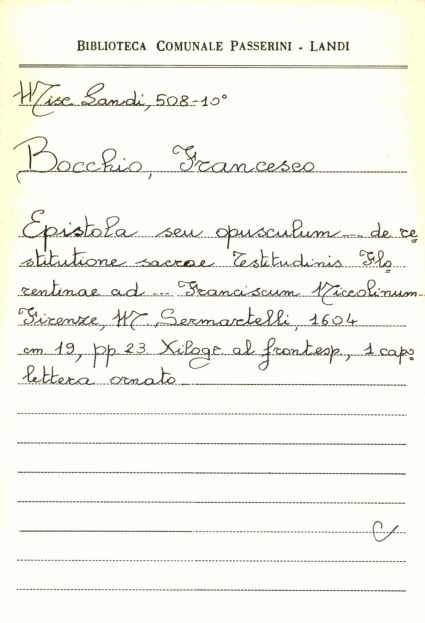 BIBLIOTECA COMUNALE PASSERINI - LANDI
Misc Landi, 508-10°
Bocchio, Francesco
Epistola seu opusculum ... de re=
stitutione sacrae Testitudinis Flo=
rentinae ad ... Franciscum Niccolinum.
Firenze, M. Sermartelli, 1604
cm 19, pp 23 Xilogr al frontesp., 1 capo=
lettera ornato